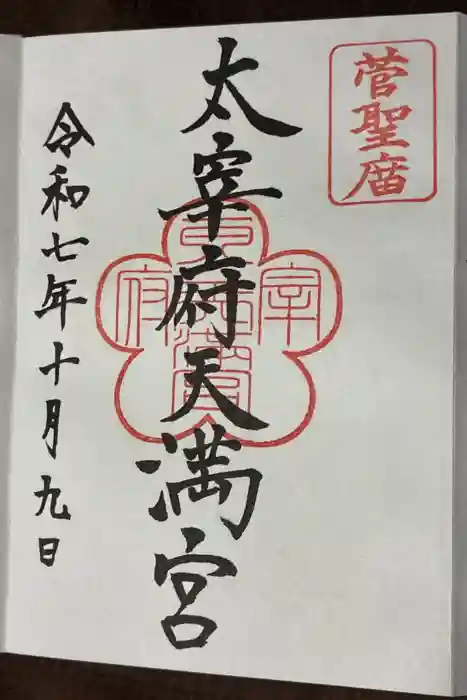 菅聖庿
太宰府天満宮
令和七年十月九日